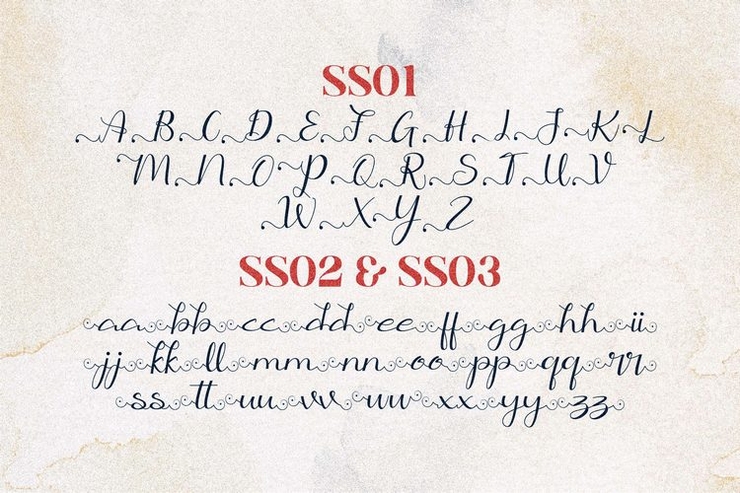 SS01
A B C D E F G H I J K L
M N O P Q R S T U V
W X Y Z
SS02 & SS03
aa bb cc dd ee ff gg hh ii
jj kk ll mm nn oo pp qq rr
ss tt uu vv ww xx yy zz